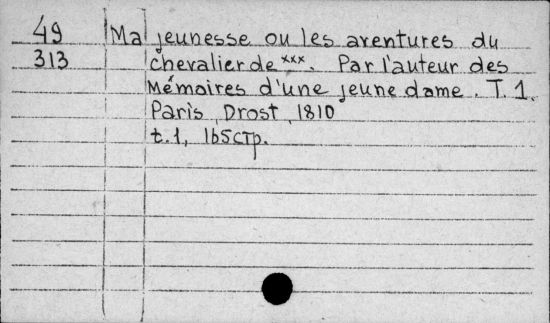 49 Ma jeunesse ou les aventures du
313 chevalier de xxx. Par l'auteur des
Mémoires d'une jeune dame. T. 1.
Paris, Drost, 1810
t.1, 165 стр.